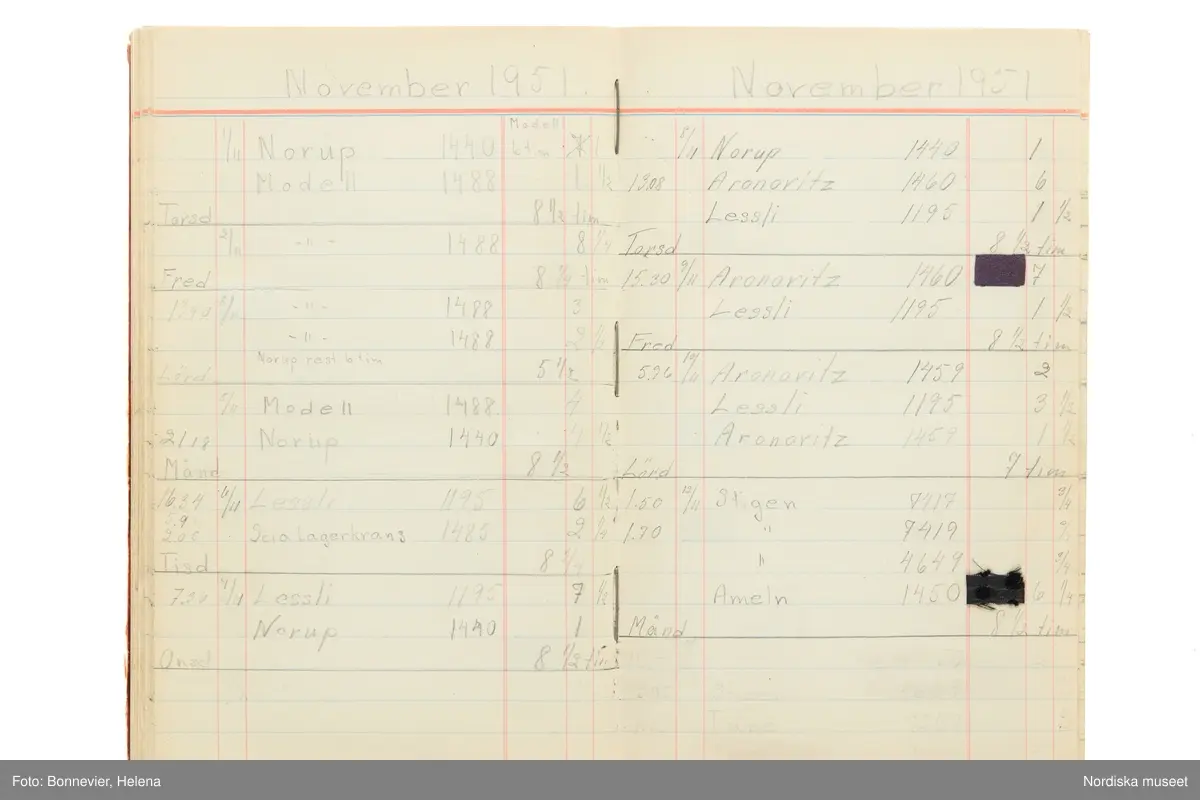 November 1951.
Modell
1/11 Norup 1440 6 tim 1
Modell 1488 1 1/2
Torsd 8 1/2 tim
2/11 - " - 1488 8 1/4
Fred 8 1/4 tim
- " - 1488 3
- " - 1488 2 1/2
Norup rest 6 tim
Lörd 5 1/2
Modell 1488 4
Norup 1440 4 1/2
Månd 8 1/2
16.34 6/11 Lessli 1195 6 1/2
5.9
2.00 Scia Lagerkrans 1485 2 1/4
Tisd 8 3/4
7/11 Lessli 1195 7 1/2
Norup 1440 1
Onsd 8 1/2 tim
November 1951
8/11 Norup 1440 1
13.08 Aronovitz 1460 6
Lessli 1195 1 1/2
Torsd 8 1/2 tim
15.30 9/11 Aronovitz 1460 7
Lessli 1195 1 1/2
Fred 8 1/2 tim
5.96 10/11 Aronovitz 1459 2
Lessli 1195 3 1/2
Aronovitz 1459 1 1/2
Lörd 7 tim
1.50 12/11 Stigen 7417 3/4
1.70 " 7419
" 4649 3/4
Ameln 1450 6 1/4
Månd 8 1/2 tim
Foto: Bonnevier, Helena
Nordiska museet